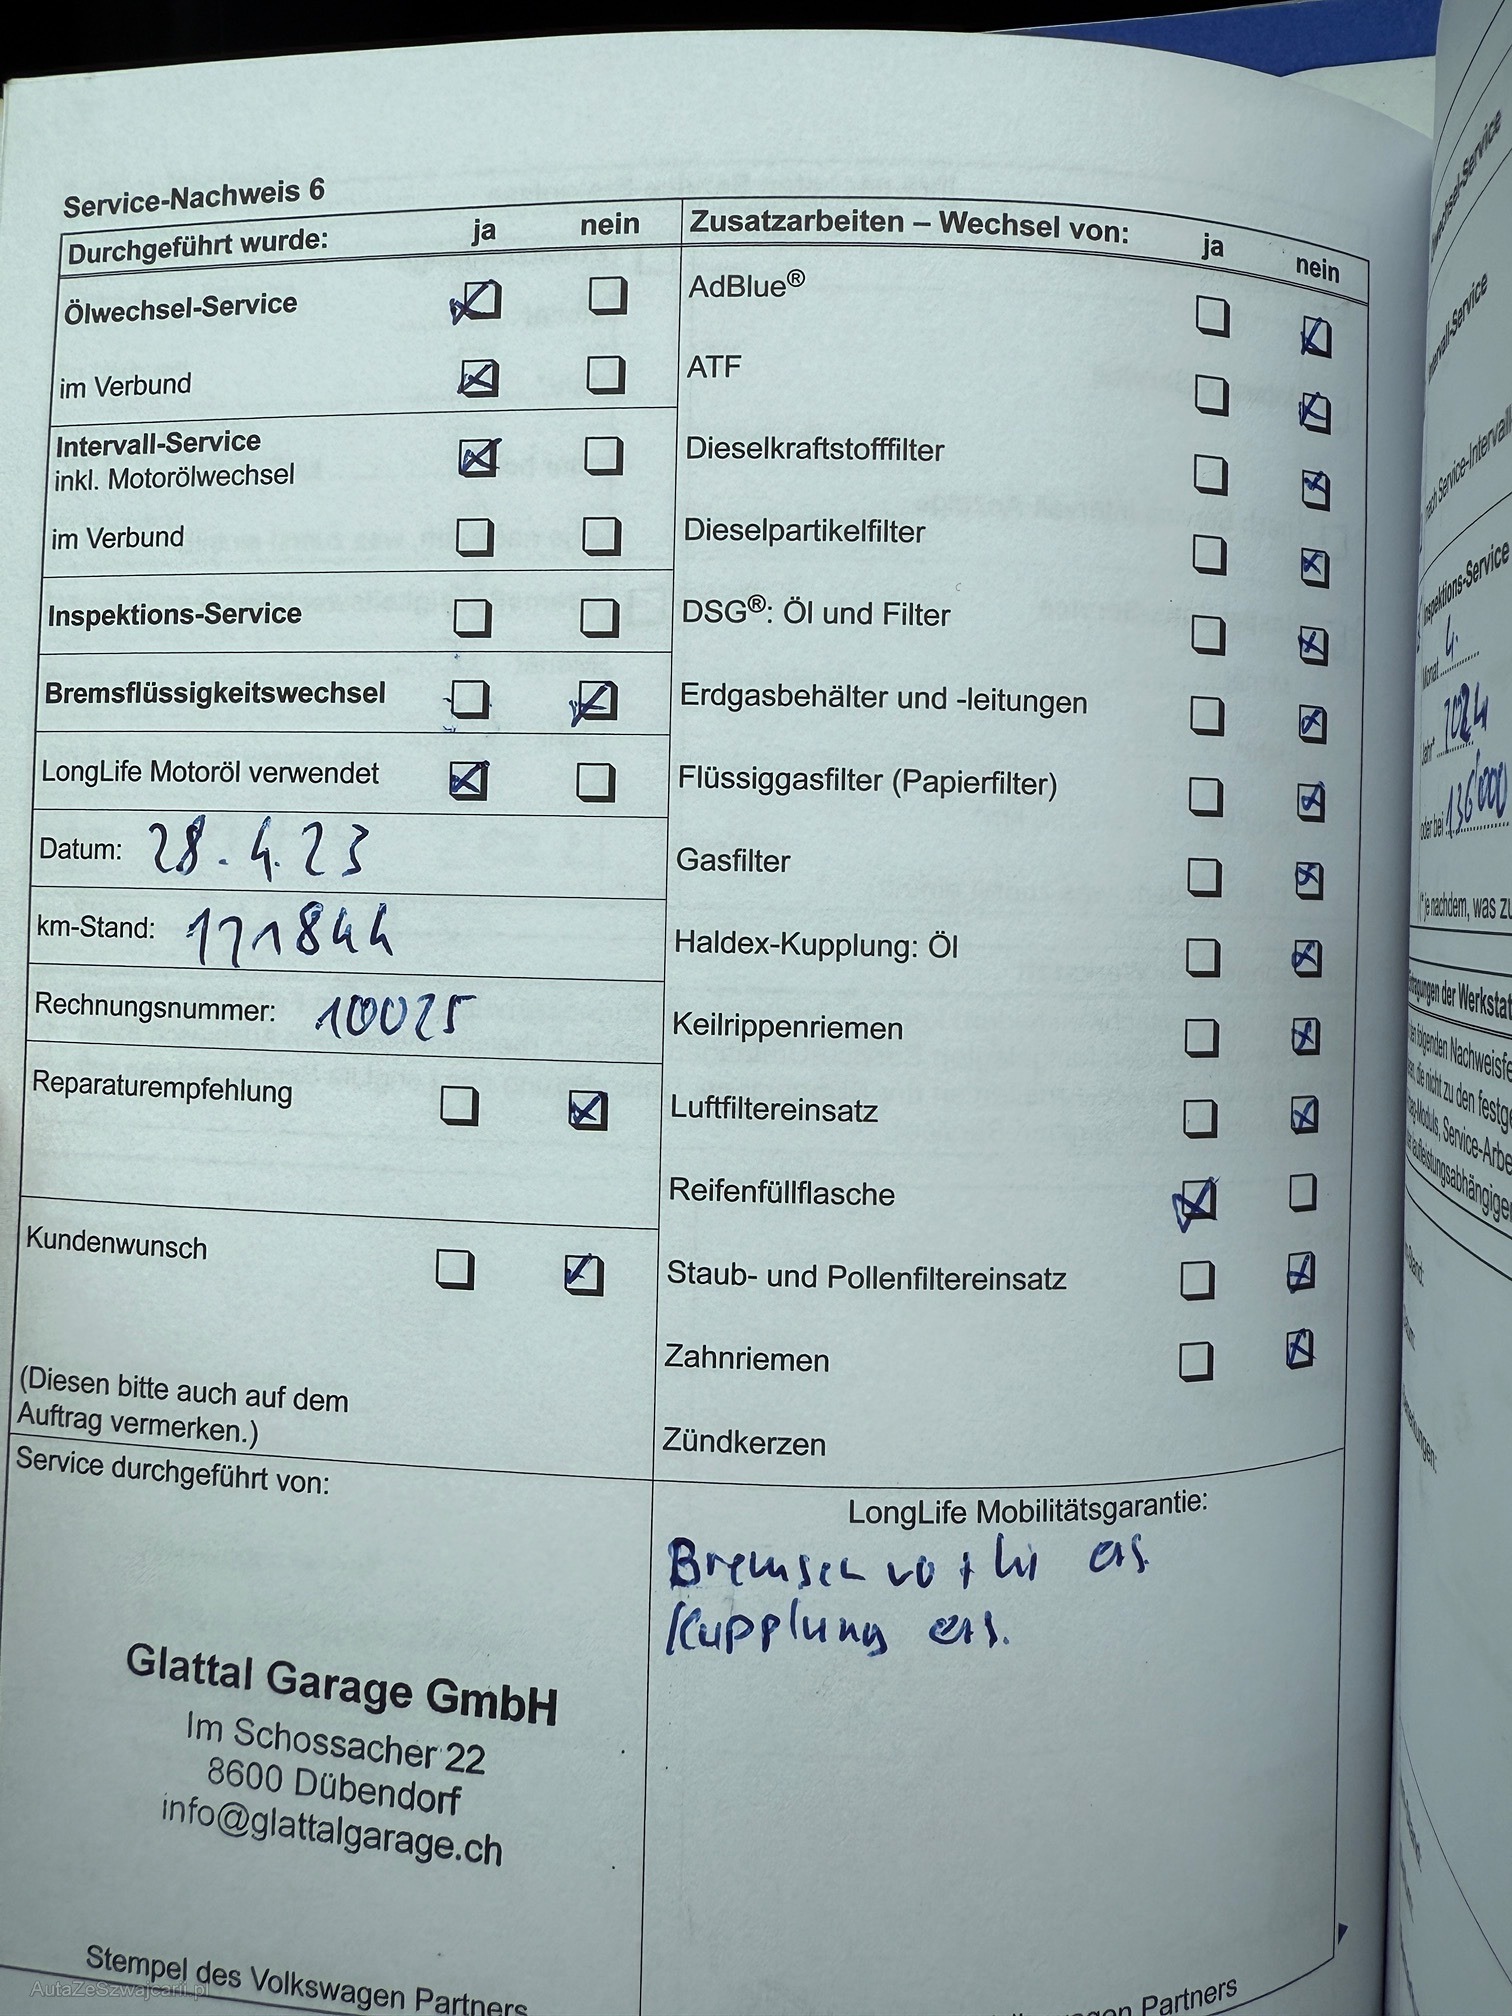 Service-Nachweis 6
Durchgeführt wurde: ja nein
Ölwechsel-Service
im Verbund
Intervall-Service
inkl. Motorölwechsel
im Verbund
Inspektions-Service
Bremsflüssigkeitswechsel
LongLife Motoröl verwendet
Datum: 28.4.23
km-Stand: 171844
Rechnungsnummer: 10025
Reparaturempfehlung
Kundenwunsch
(Diesen bitte auch auf dem
Auftrag vermerken.)
Service durchgeführt von:
Glattal Garage GmbH
Im Schossacher 22
8600 Dübendorf
info@glattalgarage.ch
Stempel des Volkswagen Partners
Zusatzarbeiten – Wechsel von: ja nein
AdBlue®
ATF
Dieselkraftstofffilter
Dieselpartikelfilter
DSG®: Öl und Filter
Erdgasbehälter und -leitungen
Flüssiggasfilter (Papierfilter)
Gasfilter
Haldex-Kupplung: Öl
Keilrippenriemen
Luftfiltereinsatz
Reifenfüllflasche
Staub- und Pollenfiltereinsatz
Zahnriemen
Zündkerzen
LongLife Mobilitätsgarantie:
Bremsen vo + hi ers.
Kupplung ers.
Partners
nach Service-Intervall
Inspektions-Service
Monat 4.
Jahr*
oder bei 136'000
(*je nachdem, was zu
der Werkstat
folgenden Nachweisfe
die nicht zu den festge
Service-Arbe
AutaZeSzwajcarii.pl